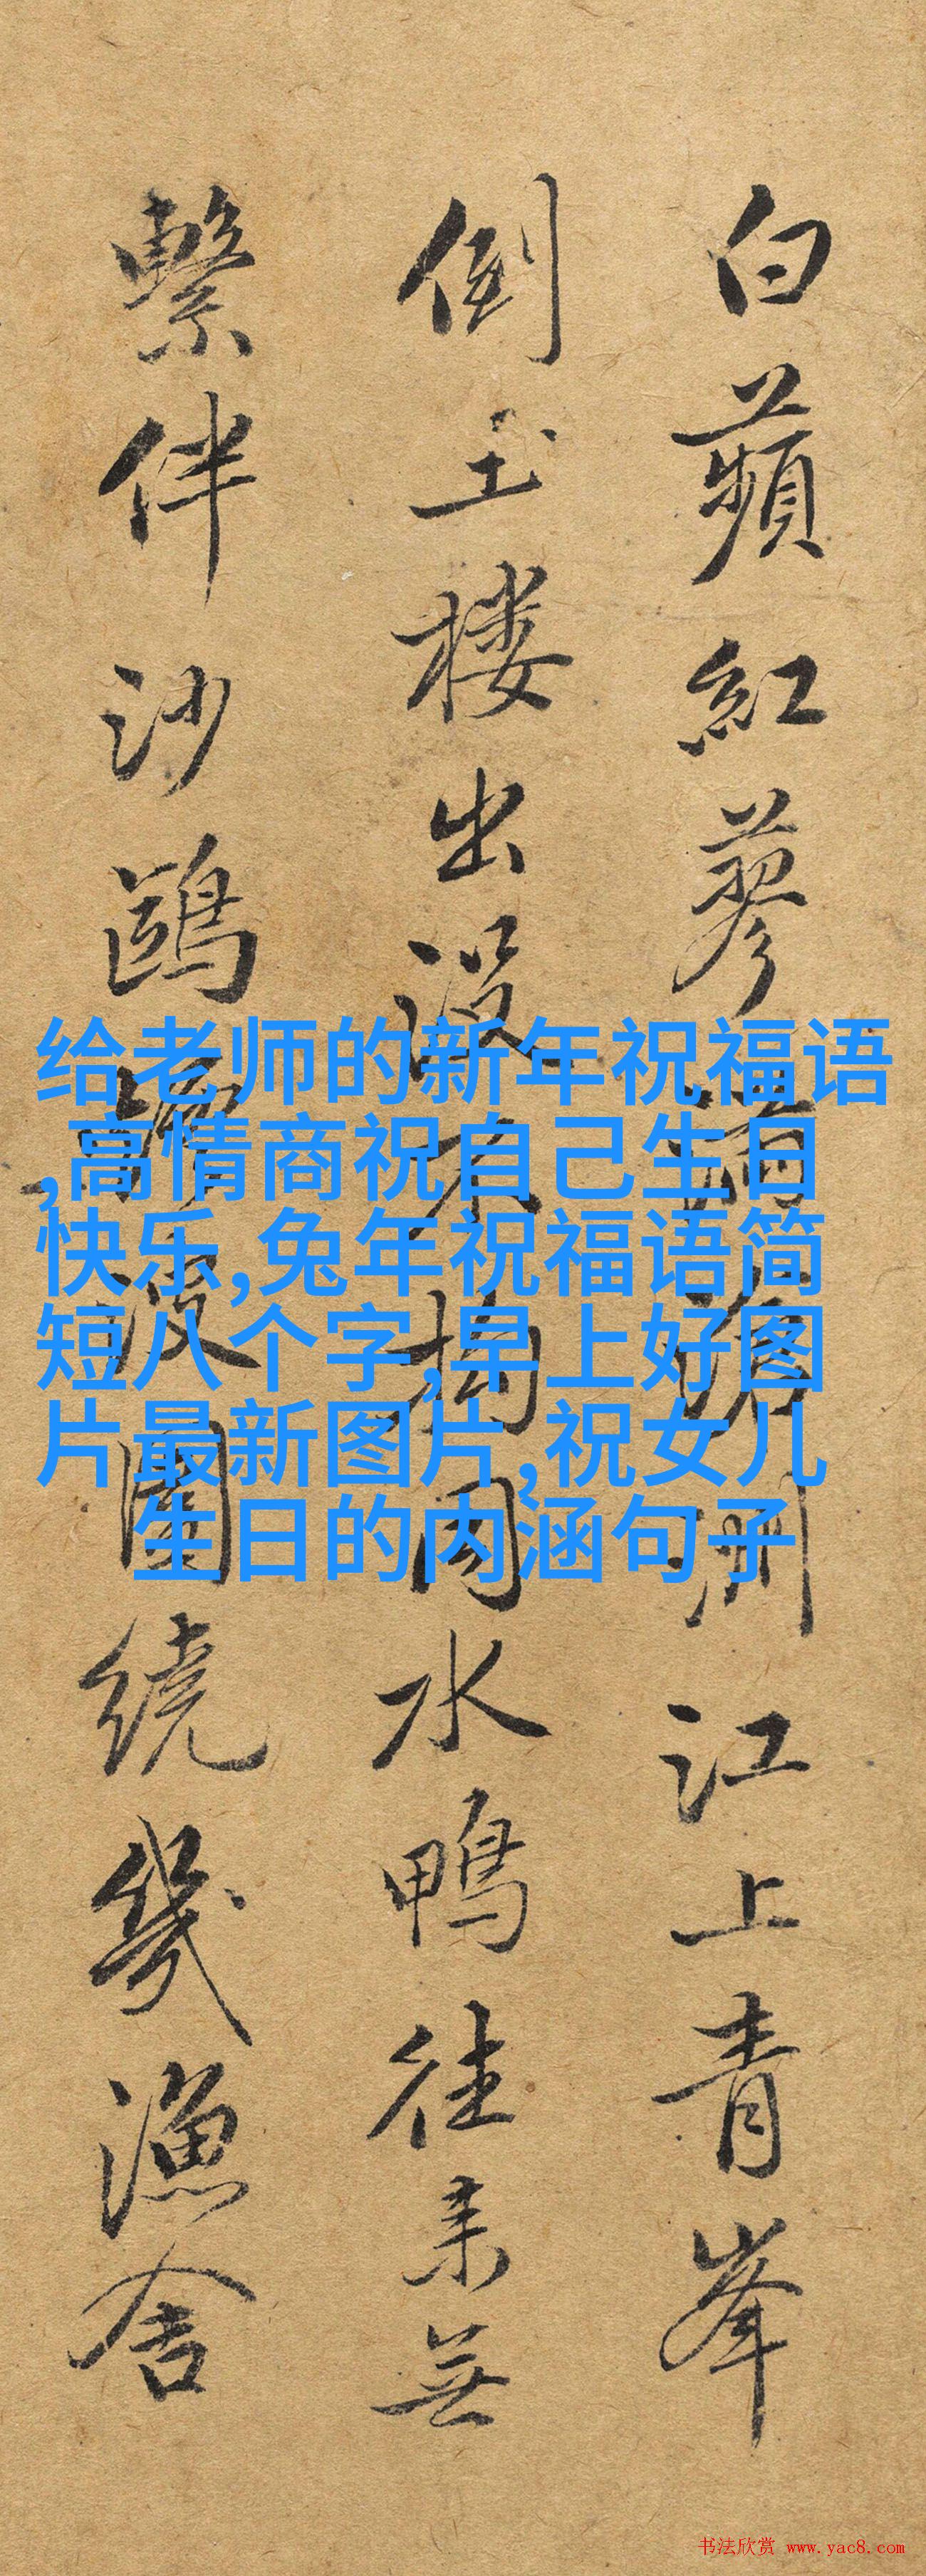 白蘋紅蓼滿滄洲江上青峯
倒玉楼出没不拘同水鴨往来無
繫伴沙鷗波圍繞幾漁舍
给老师的新年祝福语
,高情商祝自己生日
快乐,兔年祝福语简
短八个字,早上好图
片最新图片,祝女儿
生日的内涵句子
书法欣赏 www.yac8.com